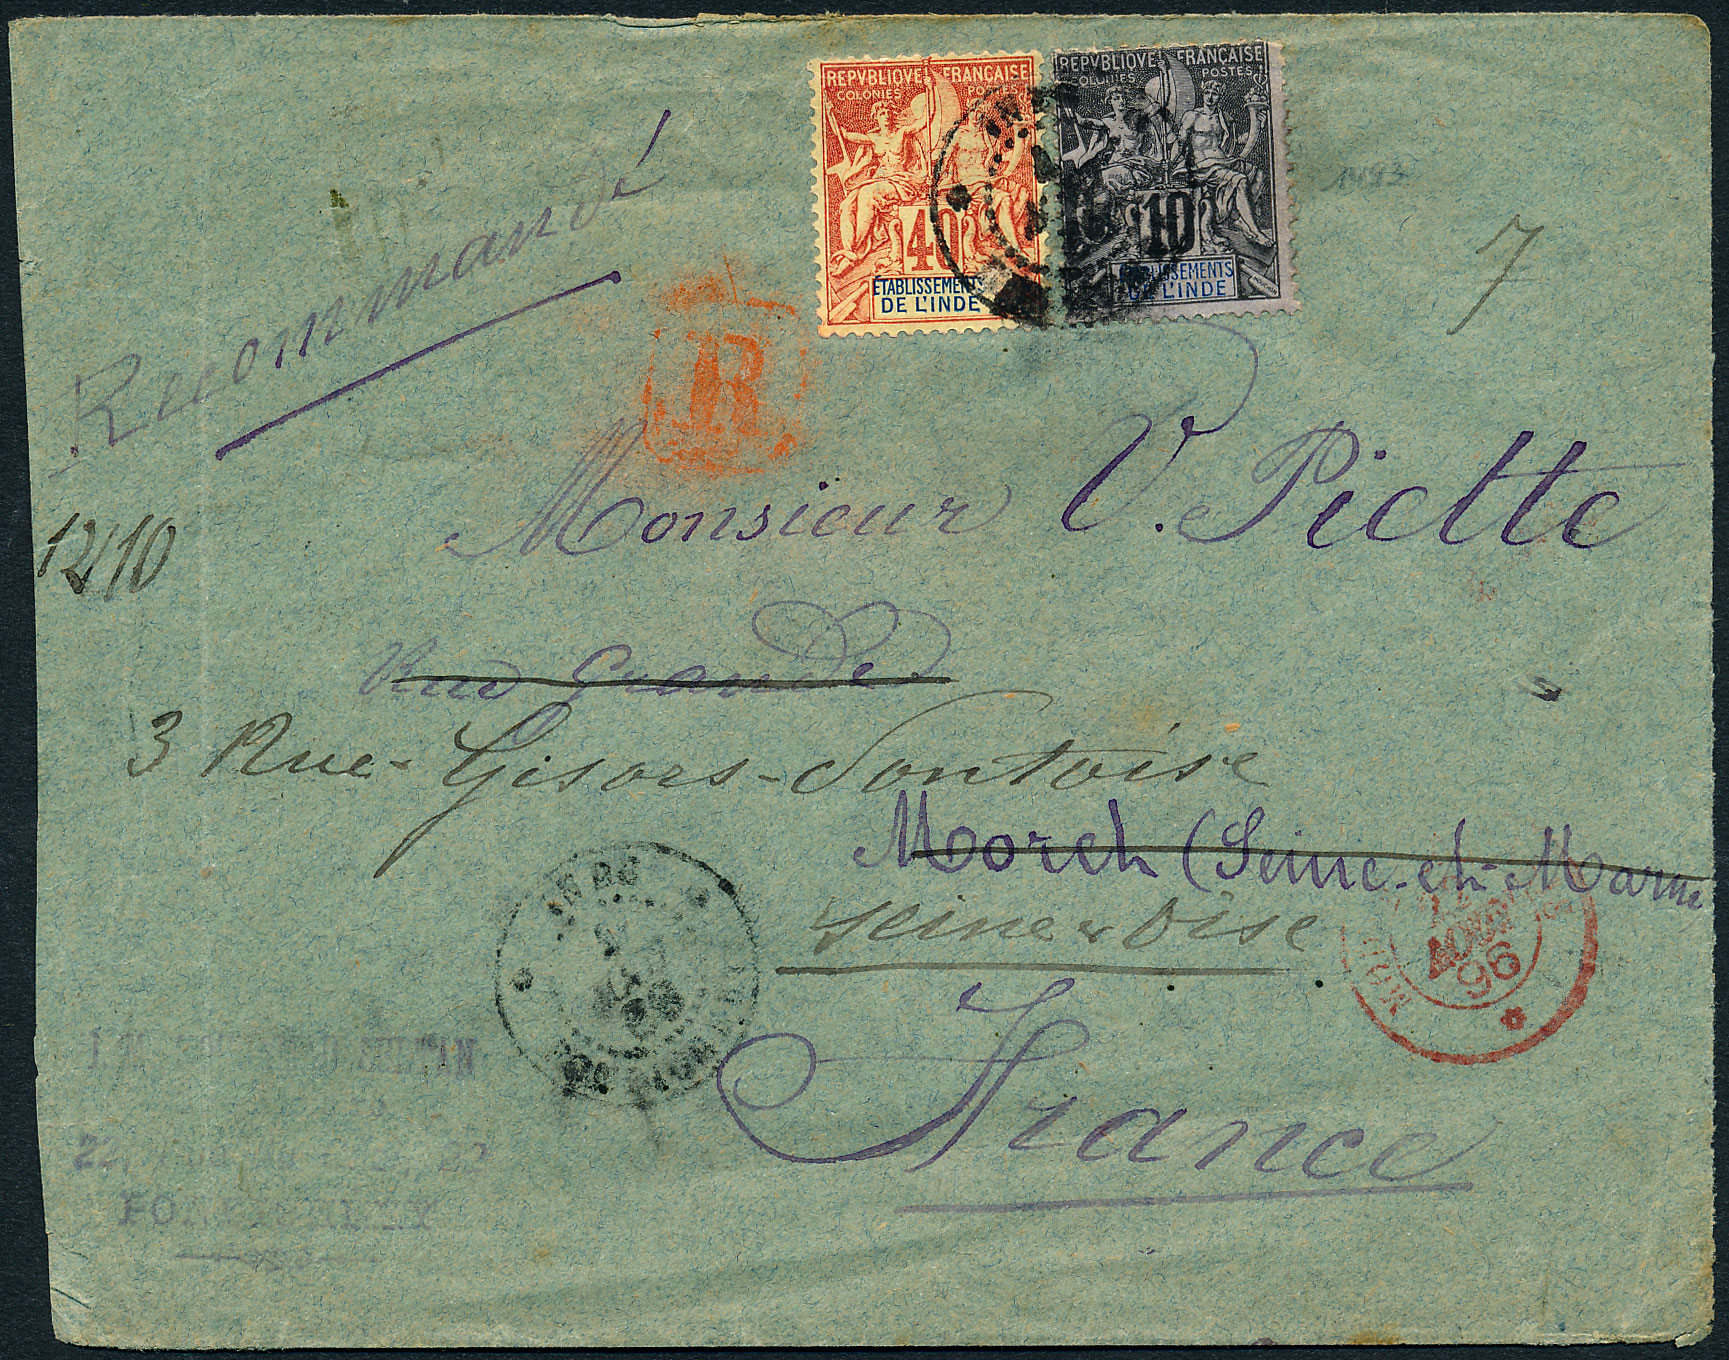 REPVBLIQVE FRANÇAISE
COLONIES POSTES
40
ÉTABLISSEMENTS
DE L'INDE
REPVBLIQVE FRANÇAISE
COLONIES POSTES
10
ÉTABLISSEMENTS
DE L'INDE
Recommandé
7
R
Monsieur V. Piette
1210
Rue Grande
3 Rue Gisors - Pontoise
Morch (Seine-et-Marne
Seine & Oise
France
INDE
AOUT
96
22